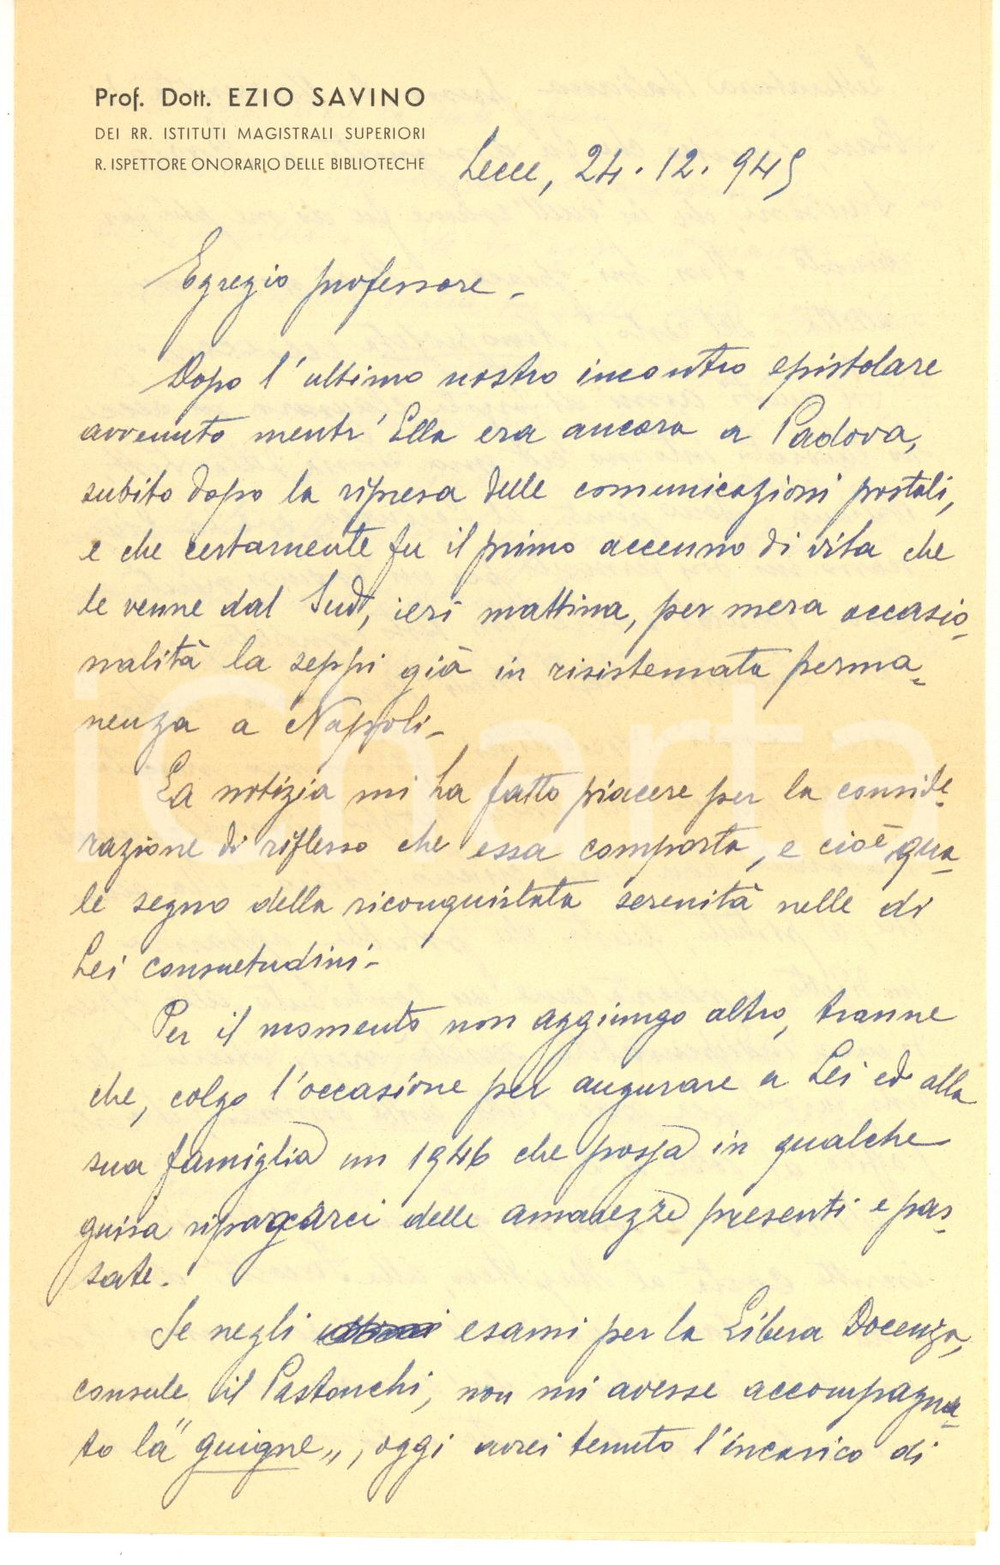 Prof. Dott. EZIO SAVINO
DEI RR. ISTITUTI MAGISTRALI SUPERIORI
R. ISPETTORE ONORARIO DELLE BIBLIOTECHE
Lecce, 24.12.945
Egregio professore -
Dopo l'ultimo nostro incontro epistolare
avvenuto mentr'Ella era ancora a Padova,
subito dopo la ripresa delle comunicazioni postali,
e che certamente fu il primo accenno di vita che
le venne dal Sud, ieri mattina, per mera occasio-
nalità la seppi già in risistemata perma-
nenza a Napoli -
La notizia mi ha fatto piacere per la conside-
razione di riflesso che essa comporta, e cioè qua-
le segno della riconquistata serenità nelle di
Lei consuetudini -
Per il momento non aggiungo altro, tranne
che, colgo l'occasione per augurare a Lei ed alla
sua famiglia un 1946 che possa in qualche
guisa ripagarci delle amarezze presenti e pas-
sate.
Se negli esami per la Libera Docenza,
consule il Pastonchi, non mi avesse accompagna-
to la "guigne", oggi avrei tenuto l'incarico di
iCharta